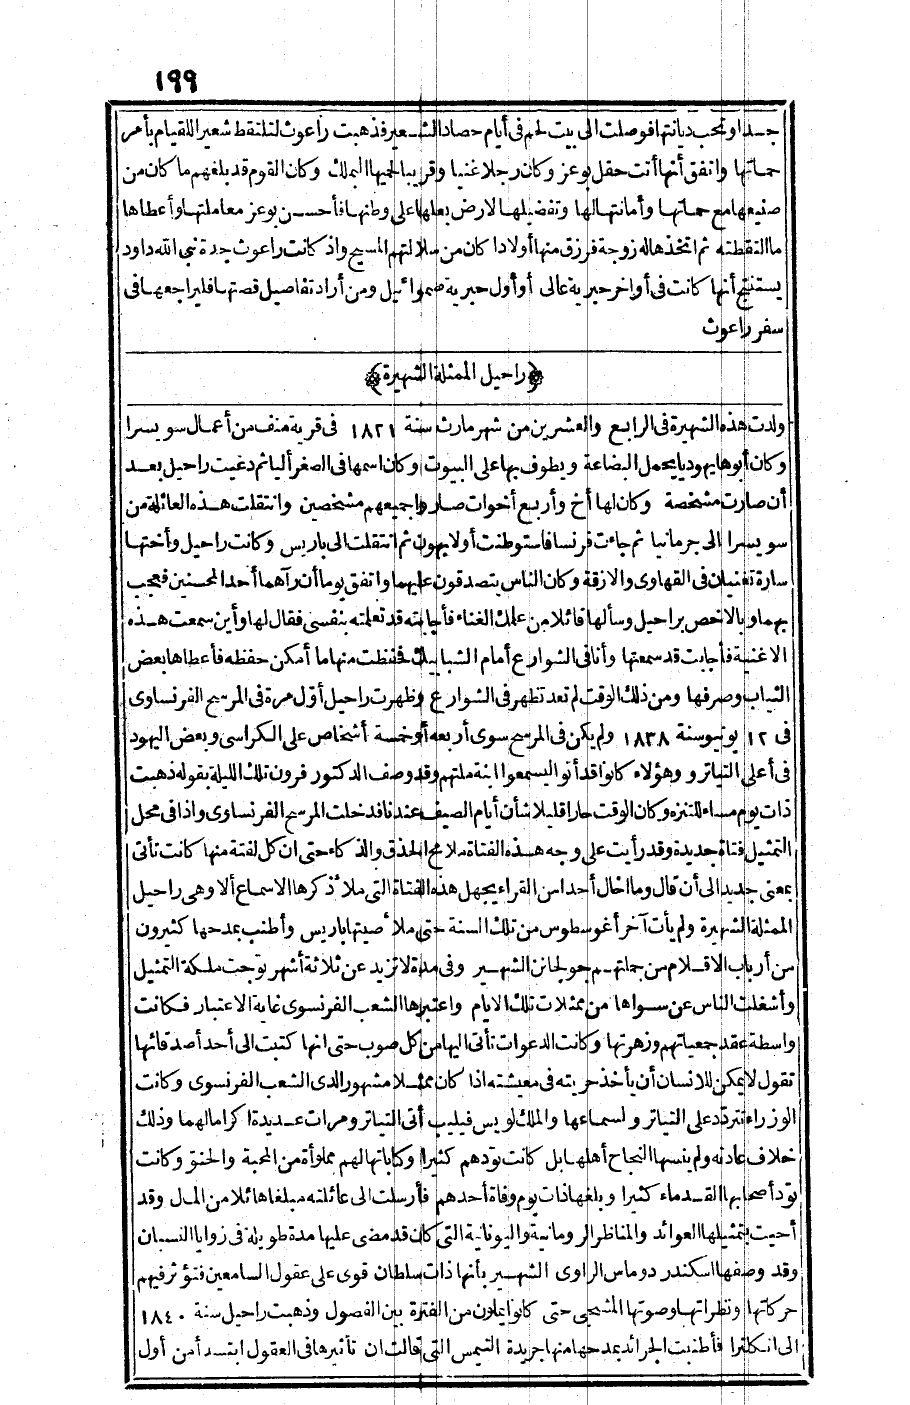 ١٩٩
جدا وتحب ديانتها فوصلت الى بيت لحم فى أيام حصاد الشعير فذهبت راعوث لتلتقط شعيرا للقيام بأمر
حماتها واتفق أنها أتت حقل بوعز وكان رجلا غنيا وقريبا لحميها اليملك وكان القوم قد بلغهم ما كان من
صنيعها مع حماتها وأمانتها لها وتفضيلها لارض بعلها على وطنها فأحسن بوعز معاملتها وأعطاها
ما التقطته ثم اتخذها له زوجة فرزق منها أولادا كان من سلالتهم المسيح واذ كانت راعوث جدة نبى الله داود
يستنتج أنها كانت فى أواخر حبرية عالى أو أول حبرية صموائيل ومن أراد تفاصيل قصتها فليراجعها فى
سفر راعوث
﴿راحيل الممثلة الشهيرة﴾
ولدت هذه الشهيرة فى الرابع والعشرين من شهر مارث سنة ١٨٢١ فى قرية منف من أعمال سويسرا
وكان أبوها يهوديا يحمل البضاعة ويطوف بها على البيوت وكان اسمها فى الصغر أليا ثم دعيت راحيل بعد
أن صارت مشخصة وكان لها أخ وأربع أخوات صاروا جميعهم مشخصين وانتقلت هذه العائلة من
سويسرا الى جرمانيا ثم جاءت فرنسا فاستوطنت أولا ليون ثم انتقلت الى باريس وكانت راحيل وأختها
سارة تغنيان فى القهاوى والازقة وكان الناس يتصدقون عليهما واتفق يوما أن رآهما أحد المحسنين فعجب
بهما وبالاخص براحيل وسألها قائلا من علمك الغناء فأجابته قد تعلمته بنفسى فقال لها وأين سمعت هذه
الاغنية فأجابت قد سمعتها وأنا فى الشوارع أمام الشبابيك فحفظت منها ما أمكن حفظه فأعطاها بعض
الثياب وصرفها ومن ذلك الوقت لم تعد تظهر فى الشوارع وظهرت راحيل أول مرة فى المرسح الفرنساوى
فى ١٢ يونيو سنة ١٨٣٨ ولم يكن فى المرسح سوى أربعه أو خمسة أشخاص على الكراسى وبعض اليهود
فى أعلى التياترو وهؤلاء كانوا قد أتوا ليسمعوا ابنة ملتهم وقد وصف الدكتور فرون تلك الليلة بقوله ذهبت
ذات يوم مساء للتنزه وكان الوقت حارا قليلا شأن أيام الصيف عندنا فدخلت المرسح الفرنساوى واذا فى محل
التمثيل فتاة جديدة وقد رأيت على وجه هذه الفتاة ملامح الحذق والذكاء حتى ان كل لفتة منها كانت تأتى
بمعنى جديد الى أن قال وما اخال أحدا من القراء يجهل هذه الفتاة التى ملأ ذكرها الاسماع ألا وهى راحيل
الممثلة الشهيرة ولم يأت آخر أغوسطوس من تلك السنة حتى ملأ صيتها باريس وأطنب بمدحها كثيرون
من أرباب الاقلام من جملتهم جولجانن الشهير وفى مدة لا تزيد عن ثلاثة أشهر توجت ملكة التمثيل
وأشغلت الناس عن سواها من ممثلات تلك الايام واعتبرها الشعب الفرنسوى غاية الاعتبار فكانت
واسطة عقد جمعياتهم وزهرتها وكانت الدعوات تأتى اليها من كل صوب حتى انها كتبت الى أحد أصدقائها
تقول لا يمكن للانسان أن يأخذ حريته فى معيشته اذا كان ممثلا مشهورا لدى الشعب الفرنسوى وكانت
الوزراء تتردد على التياترو لسماعها والملك لويس فيليب أتى التياترو مرات عديدة اكراما لهما وذلك
خلاف عادته ولم ينسها النجاح أهلها بل كانت تودهم كثيرا وكتاباتها لهم مملوأة من المحبة والحنو وكانت
تود أصحابها القدماء كثيرا وبلغها ذات يوم وفاة أحدهم فأرسلت الى عائلته مبلغا هائلا من المال وقد
أحيت بتمثيلها العوائد والمناظر الرومانية واليونانية التى كان قد مضى عليها مدة طويلة فى زوايا النسيان
وقد وصفها اسكندر دوماس الراوى الشهير بأنها ذات سلطان قوى على عقول السامعين فتؤثر فيهم
حركاتها ونظراتها وصوتها الشجى حتى كانوا يملون من الفترة بين الفصول وذهبت راحيل سنة ١٨٤٠
الى انكلترا فأطنبت الجرائد بمدحها منها جريدة التيمس التى قالت ان تأثيرها فى العقول ابتدأ من أول